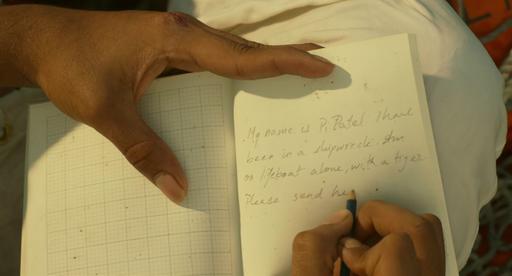 My name is Pi Patel I have
been in a shipwreck. I am
on lifeboat alone, with a tiger
Please send he